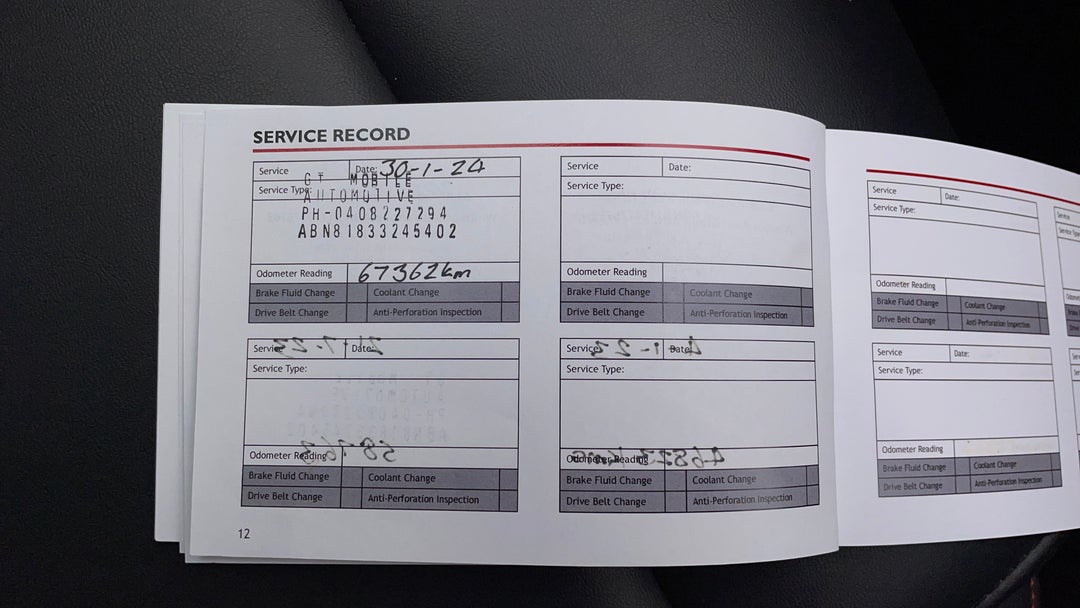 SERVICE RECORD
Service Date: 30-1-24
Service Type:
GT MOBILE
AUTOMOTIVE
PH-0408227294
ABN81833245402
Odometer Reading 67362km
Brake Fluid Change Coolant Change
Drive Belt Change Anti-Perforation Inspection
Service Date:
Service Type:
Odometer Reading
Brake Fluid Change Coolant Change
Drive Belt Change Anti-Perforation Inspection
Service Date:
Service Type:
Odometer Reading
Brake Fluid Change Coolant Change
Drive Belt Change Anti-Perforation Inspection
Service Date:
Service Type:
Odometer Reading
Brake Fluid Change Coolant Change
Drive Belt Change Anti-Perforation Inspection
12
Service Date:
Service Type:
Odometer Reading
Brake Fluid Change Coolant Change
Drive Belt Change Anti-Perforation Inspection
Service Date:
Service Type:
Odometer Reading
Brake Fluid Change Coolant Change
Drive Belt Change Anti-Perforation Inspection